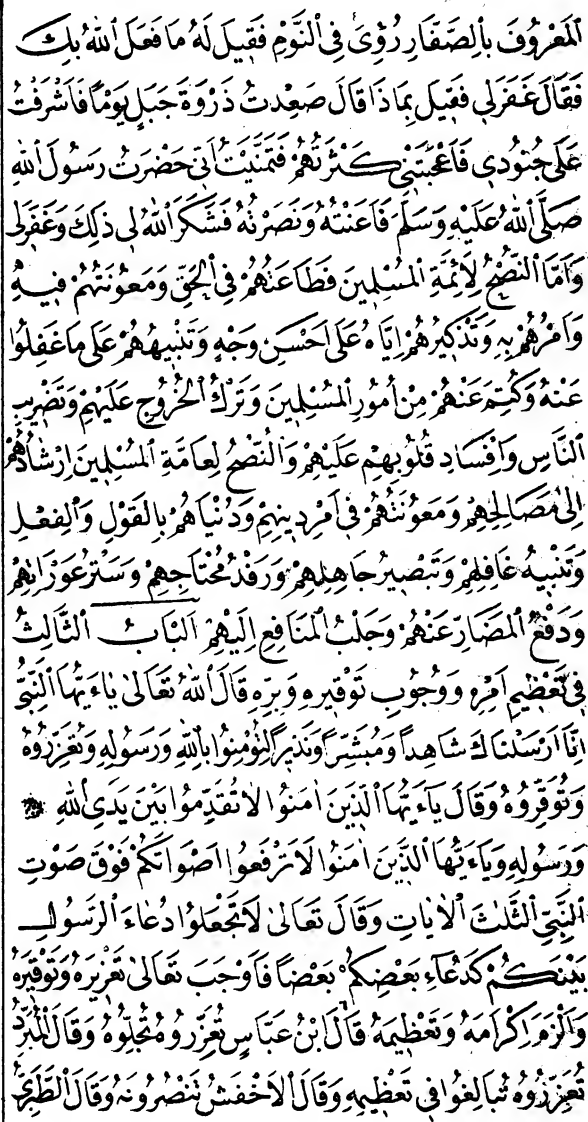 اَلْمَعْرُوفَ بِالصَّفَّارِ رُؤِىَ فِى النَّوْمِ فَقِيلَ لَهُ مَا فَعَلَ اللهُ بِكَ
فَقَالَ غَفَرَلِى فَقِيلَ بِمَا ذَا قَالَ صَعِدْتُ ذَرْوَةَ جَبَلٍ يَوْمًا فَاَشْرَفْتُ
عَلَى جُنُودِى فَاَعْجَبَتْنِى كَثْرَتُهُمْ فَتَمَنَّيْتُ اَنِّى حَضَرْتُ رَسُولَ اللهِ
صَلَّى اللهُ عَلَيْهِ وَسَلَّمَ فَاَعَنْتُهُ وَنَصَرْتُهُ فَشَكَرَ اللهُ لِى ذٰلِكَ وَغَفَرَلِى
وَاَمَّا النُّصْحُ لِاَئِمَّةِ الْمُسْلِمِينَ فَطَاعَتُهُمْ فِى الْحَقِّ وَمَعُونَتُهُمْ فِيهِ
وَاَمْرُهُمْ بِهِ وَتَذْكِيرُهُمْ اِيَّاهُ عَلَى اَحْسَنِ وَجْهٍ وَتَنْبِيهُهُمْ عَلَى مَا غَفَلُوا
عَنْهُ وَكُتِمَ عَنْهُمْ مِنْ اُمُورِ الْمُسْلِمِينَ وَتَرْكُ الْخُرُوجِ عَلَيْهِمْ وَتَضْرِيبِ
النَّاسِ وَاِفْسَادِ قُلُوبِهِمْ عَلَيْهِمْ وَالنُّصْحُ لِعَامَّةِ الْمُسْلِمِينَ اِرْشَادُهُمْ
اِلَى مَصَالِحِهِمْ وَمَعُونَتُهُمْ فِى اَمْرِ دِينِهِمْ وَدُنْيَاهُمْ بِالْقَوْلِ وَالْفِعْلِ
وَتَنْبِيهُ غَافِلِهِمْ وَتَبْصِيرُ جَاهِلِهِمْ وَرَفْدُ مُحْتَاجِهِمْ وَسَتْرُ عَوْرَاتِهِمْ
وَدَفْعُ الْمَضَارِّ عَنْهُمْ وَجَلْبُ الْمَنَافِعِ اِلَيْهِمْ اَلْبَابُ الثَّالِثُ
فِى تَعْظِيمِ اَمْرِهِ وَوُجُوبِ تَوْقِيرِهِ وَبِرِّهِ قَالَ اللهُ تَعَالٰى يَاءَيُّهَا النَّبِىُّ
اِنَّا اَرْسَلْنَاكَ شَاهِدًا وَمُبَشِّرًا وَنَذِيرًا لِتُؤْمِنُوا بِاللهِ وَرَسُولِهِ وَتُعَزِّرُوهُ
وَتُوَقِّرُوهُ وَقَالَ يَاءَيُّهَا الَّذِينَ اٰمَنُوا لَا تُقَدِّمُوا بَيْنَ يَدَىِ اللهِ
وَرَسُولِهِ وَيَاءَيُّهَا الَّذِينَ اٰمَنُوا لَا تَرْفَعُوا اَصْوَاتَكُمْ فَوْقَ صَوْتِ
النَّبِىِّ الثَّلٰثَ الْاٰيَاتِ وَقَالَ تَعَالٰى لَا تَجْعَلُوا دُعَاءَ الرَّسُولِ
بَيْنَكُمْ كَدُعَاءِ بَعْضِكُمْ بَعْضًا فَاَوْجَبَ تَعَالٰى تَعْزِيرَهُ وَتَوْقِيرَهُ
وَاَلْزَمَ اِكْرَامَهُ وَتَعْظِيمَهُ قَالَ ابْنُ عَبَّاسٍ تُعَزِّرُوهُ تُجِلُّوهُ وَقَالَ الْمُبَرِّدُ
تُعَزِّرُوهُ تُبَالِغُوا فِى تَعْظِيمِهِ وَقَالَ الْاَخْفَشُ تَنْصُرُونَهُ وَقَالَ الطَّبَرِىُّ